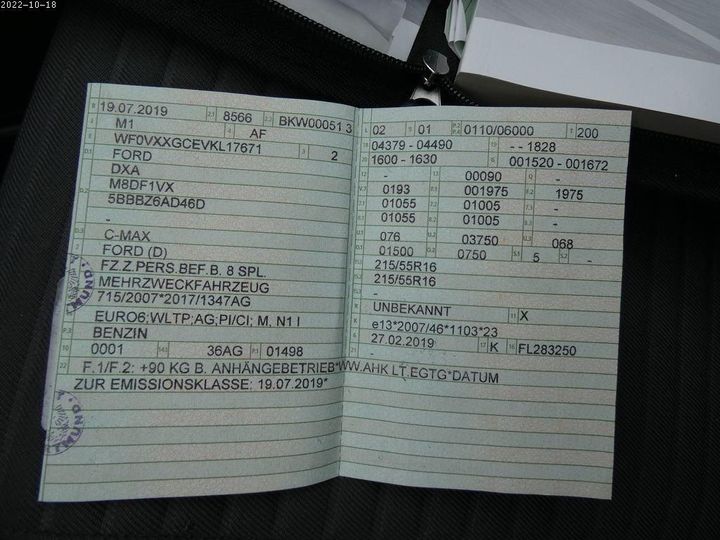 2022-10-18
B 19.07.2019 2.1 8566 2.2 BKW00051 3
J M1 4 AF
E WF0VXXGCEVKL17671 3 2
D.1 FORD
DXA
D.2 M8DF1VX
5BBBZ6AD46D
-
D.3 C-MAX
2 FORD (D)
FZ.Z.PERS.BEF.B. 8 SPL.
MEHRZWECKFAHRZEUG
715/2007*2017/1347AG
EURO6;WLTP;AG;PI/CI; M, N1 I
P.3 BENZIN
10 0001 14.1 36AG P.1 01498
22 F.1/F.2: +90 KG B. ANHÄNGEBETRIEB*WW.AHK LT.EGTG*DATUM
ZUR EMISSIONSKLASSE: 19.07.2019*
L 02 9 01 P.2 P.4 0110/06000 T 200
18 04379 - 04490 19 - - 1828
20 1600 - 1630 G 001520 - 001672
12 - 13 00090 Q -
0193 001975 1975
01055 01005 -
01055 01005 -
U.1 076 U.2 03750 U.3 068
O.1 01500 O.2 0750 S.1 5 S.2 -
215/55R16
215/55R16
-
R UNBEKANNT 11 X
K e13*2007/46*1103*23
6 27.02.2019 17 K 16 FL283250